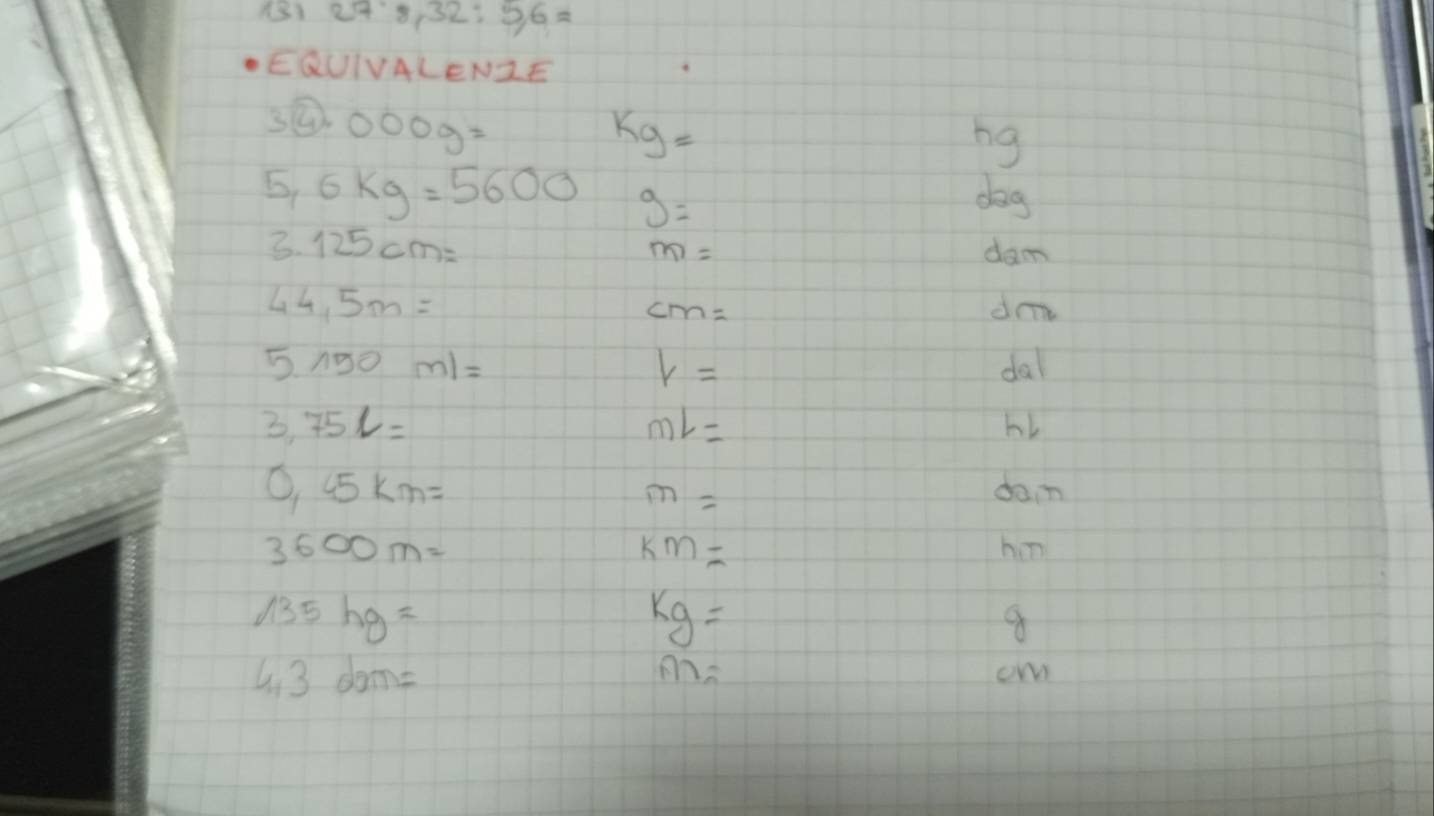 13) 27 : 8,32 : 5,6 =
• EQUIVALENZE
34.000g= Kg= hg
5,6 Kg = 5600 g= dag
3.125 cm= m= dam
44,5m= cm= dm
5.190 ml= l= dal
3,75 l= ml= hl
0,45 Km= m= dam
3600m= Km= hm
135 hg= Kg= g
4,3 dam= m= cm